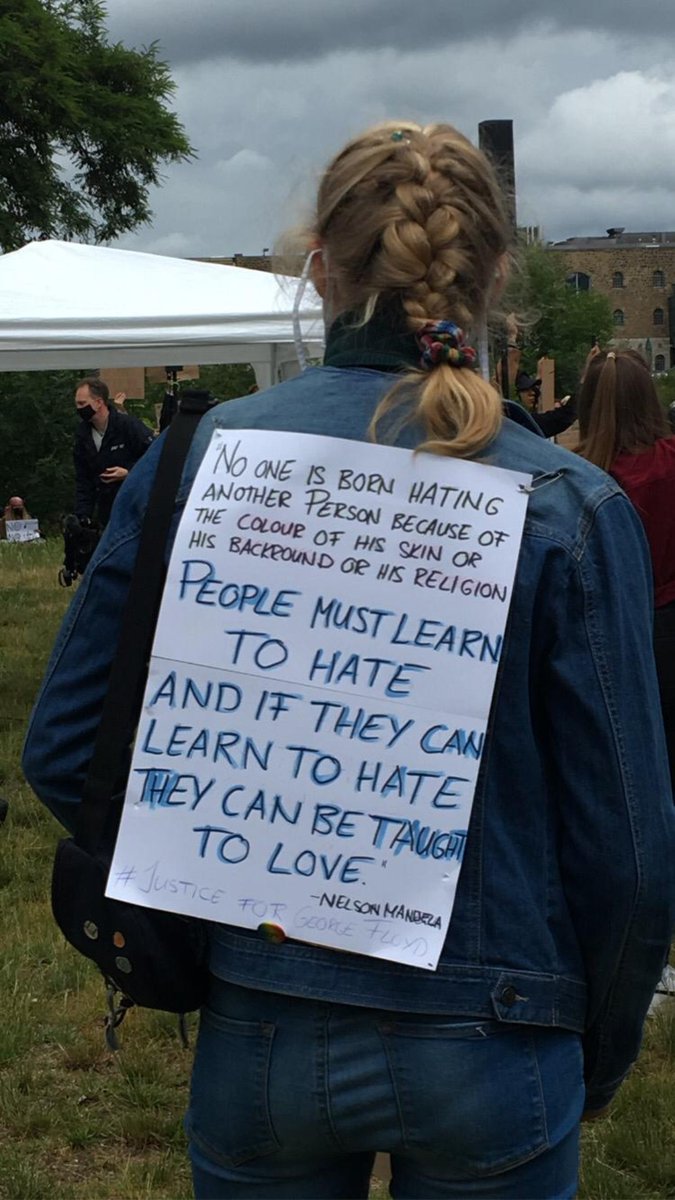 "NO ONE IS BORN HATING
ANOTHER PERSON BECAUSE OF
THE COLOUR OF HIS SKIN OR
HIS BACKROUND OR HIS RELIGION
PEOPLE MUST LEARN
TO HATE
AND IF THEY CAN
LEARN TO HATE
THEY CAN BE TAUGHT
TO LOVE."
-NELSON MANDELA
#JUSTICE FOR GEORGE FLOYD